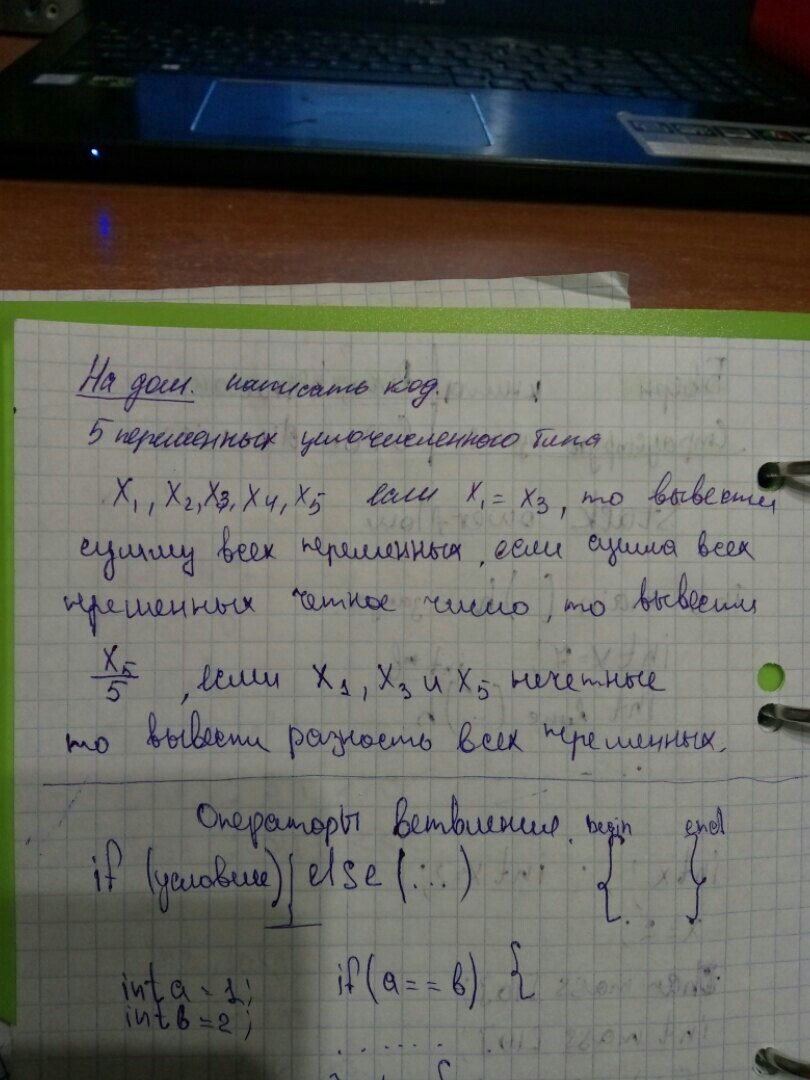 На дом. написать код.
5 переменных целочисленного типа
X₁, X₂, X₃, X₄, X₅ если X₁ = X₃, то вывести
сумму всех переменных, если сумма всех
переменных четное число, то вывести
X₅/5, если X₁, X₃ и X₅ нечетные
то вывести разность всех переменных.
Операторы ветвления. begin end
if (условие) { else (...) { }
int a = 1; if (a == b) {
int b = 2;